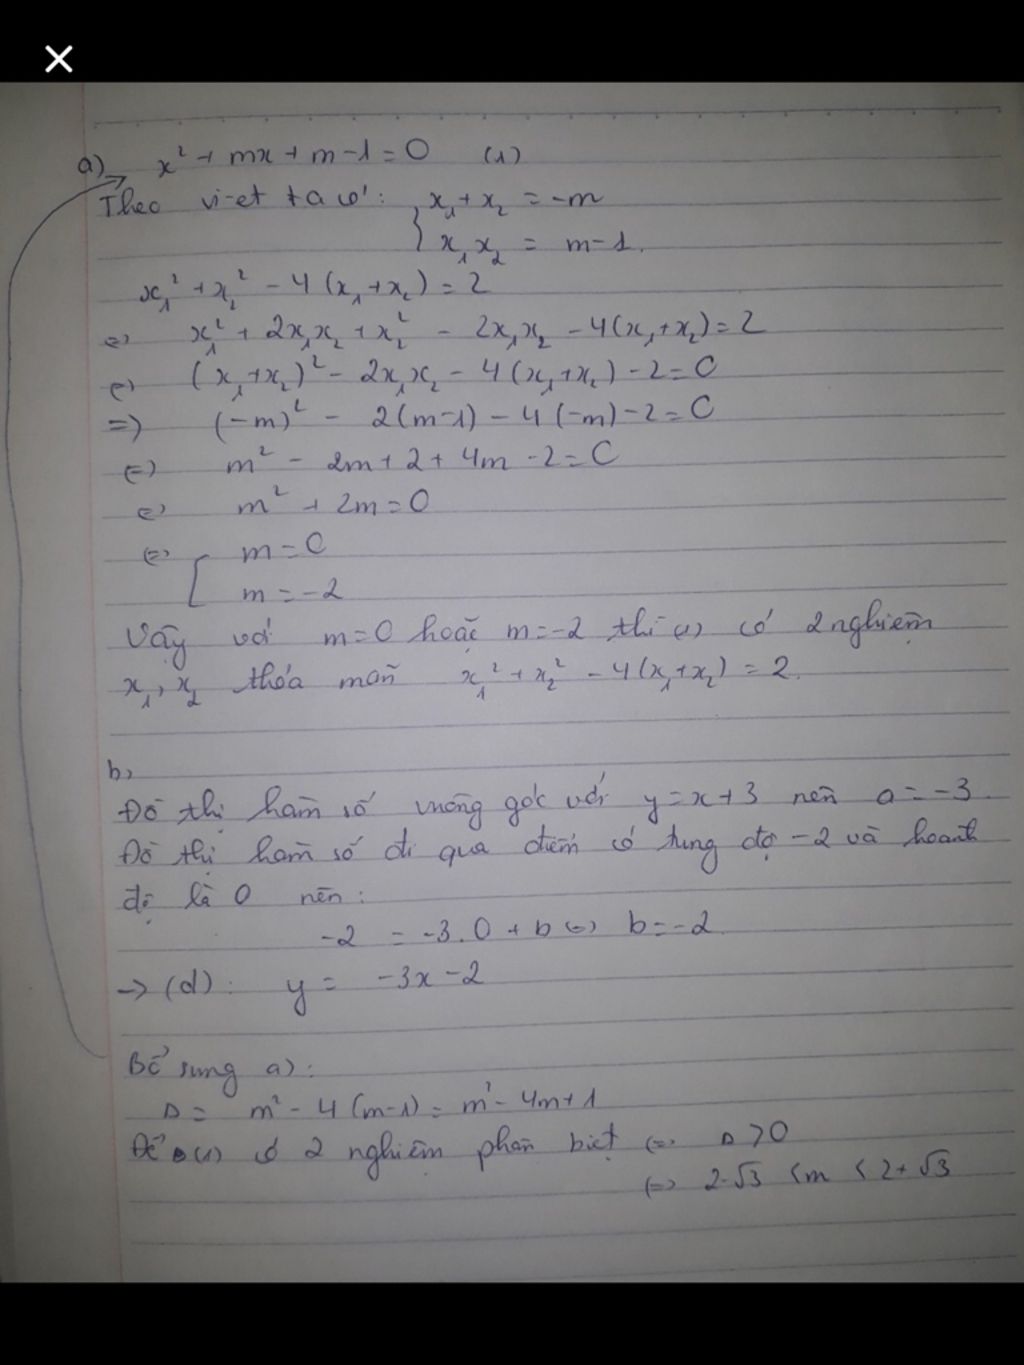 a) x² + mx + m - 1 = 0 (1)
Theo vi-et ta có: { x₁ + x₂ = -m
x₁x₂ = m-1.
x₁² + x₂² - 4(x₁+x₂) = 2
⇔ x₁² + 2x₁x₂ + x₂² - 2x₁x₂ - 4(x₁+x₂) = 2
⇔ (x₁+x₂)² - 2x₁x₂ - 4(x₁+x₂) - 2 = 0
=) (-m)² - 2(m-1) - 4(-m) - 2 = 0
⇔ m² - 2m + 2 + 4m - 2 = 0
⇔ m² + 2m = 0
⇔ [ m = 0
m = -2
Vậy với m=0 hoặc m=-2 thì (1) có 2 nghiệm
x₁, x₂ thỏa mãn x₁² + x₂² - 4(x₁+x₂) = 2.
b,
Đồ thị hàm số vuông góc với y = x+3 nên a = -3.
Đồ thị hàm số đi qua điểm có tung độ -2 và hoành
độ là 0 nên:
-2 = -3.0 + b ⇔ b = -2
-> (d): y = -3x - 2
Bổ sung a):
Δ = m² - 4(m-1) = m² - 4m + 1
Để (1) có 2 nghiệm phân biệt ⇔ Δ > 0
⇔ 2-√3 < m < 2+√3